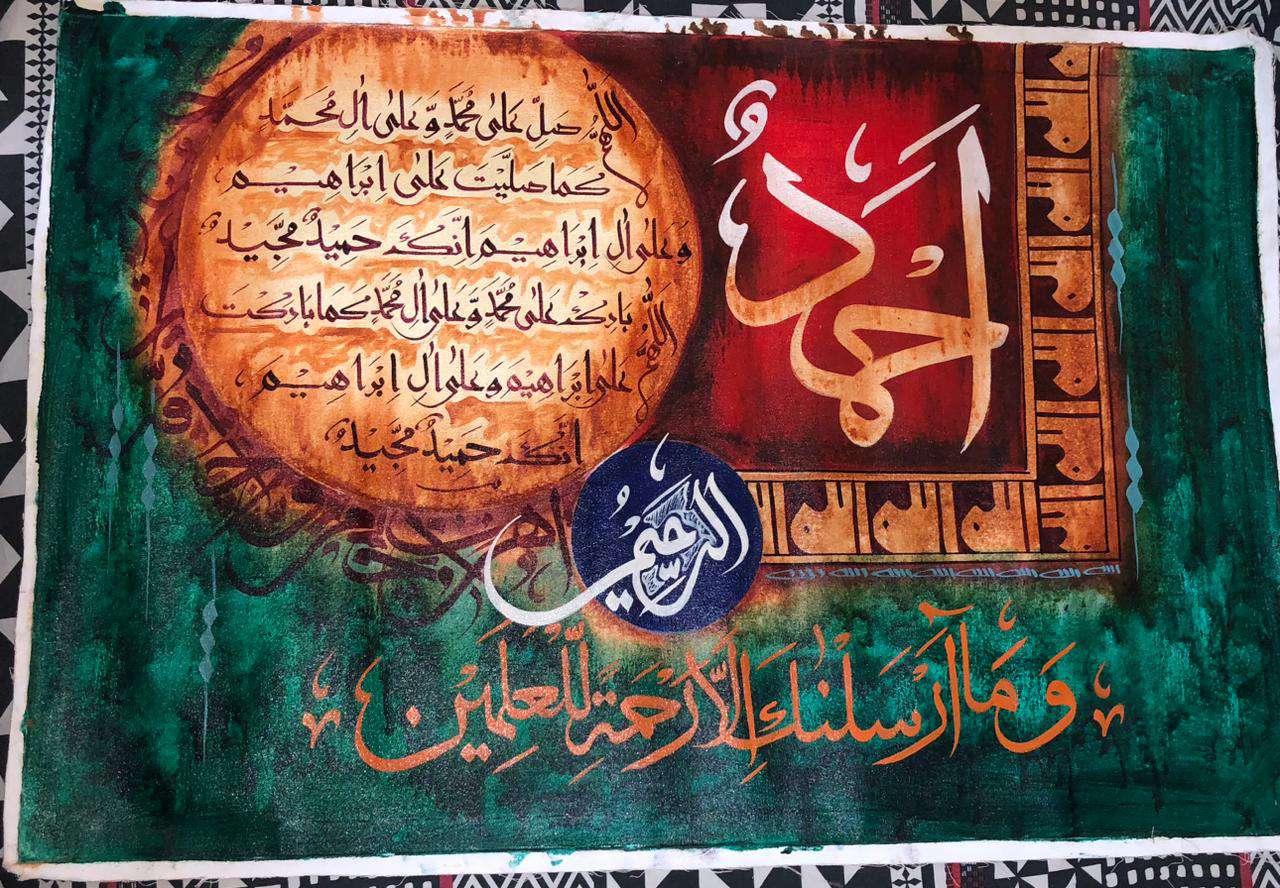 اللّٰهُمَّ صَلِّ عَلٰى مُحَمَّدٍ وَّ عَلٰى اٰلِ مُحَمَّدٍ
كَمَا صَلَّيْتَ عَلٰى اِبْرَاهِيْمَ
وَعَلٰى اٰلِ اِبْرَاهِيْمَ اِنَّكَ حَمِيْدٌ مَّجِيْدٌ
اللّٰهُمَّ بَارِكْ عَلٰى مُحَمَّدٍ وَّ عَلٰى اٰلِ مُحَمَّدٍ كَمَا بَارَكْتَ
عَلٰى اِبْرَاهِيْمَ وَعَلٰى اٰلِ اِبْرَاهِيْمَ
اِنَّكَ حَمِيْدٌ مَّجِيْدٌ
اَحْمَدُ
الرَّحِيْمُ
وَمَآ اَرْسَلْنٰكَ اِلَّا رَحْمَةً لِّلْعٰلَمِيْنَ